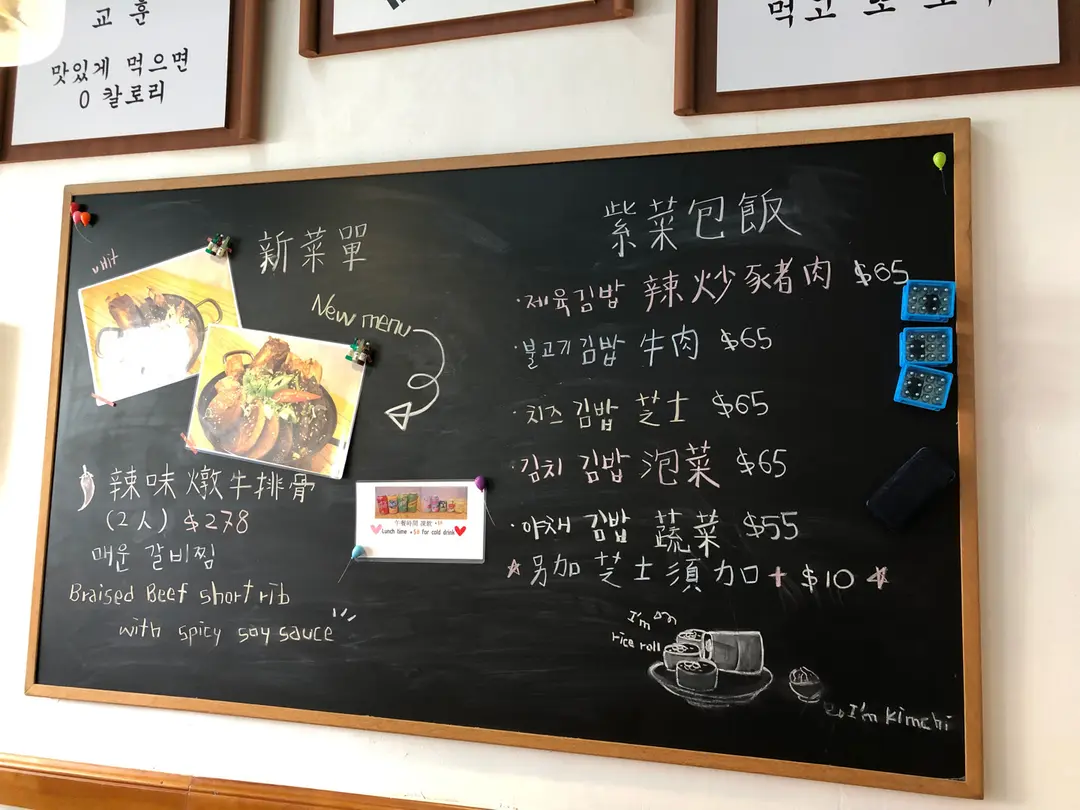 교 훈
맛있게 먹으면
0 칼로리
Hit
新菜單
New menu
辣味 燉牛排骨
(2人) $278
매운 갈비찜
Braised Beef short rib
with spicy soy sauce
午餐時間 凍飲
Lunch time +$8 for cold drink
紫菜包飯
·제육김밥 辣炒豬肉 $65
·불고기김밥 牛肉 $65
·치즈 김밥 芝士 $65
·김치 김밥 泡菜 $65
·야채 김밥 蔬菜 $55
☆另加 芝士 須加 + $10 ☆
I'm
rice roll
I'm kimchi